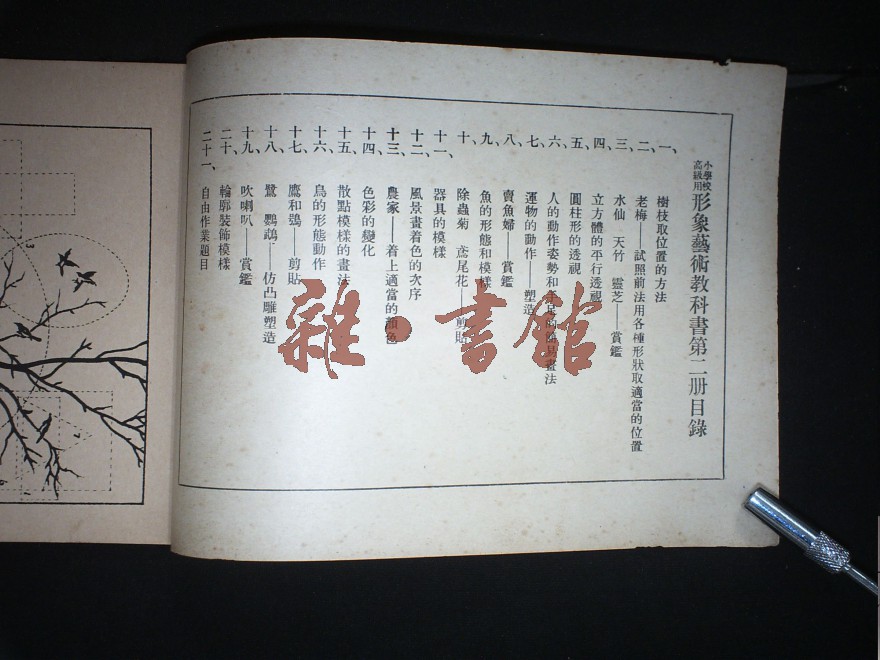 小學校高級用 形象藝術教科書第二册目錄
一、樹枝取位置的方法
二、老梅——試照前法用各種形狀取適當的位置
三、水仙 天竹 靈芝——賞鑑
四、立方體的平行透視
五、圓柱形的透視
六、人的動作姿勢和手足的簡易畫法
七、運物的動作——塑造
八、賣魚婦——賞鑑
九、魚的形態和模樣
十、除蟲菊 鳶尾花——剪貼
十一、器具的模樣
十二、風景畫着色的次序
十三、農家——着上適當的顏色
十四、色彩的變化
十五、散點模樣的畫法
十六、鳥的形態動作
十七、鷹和鵄——剪貼
十八、鷺 鸚鵡——仿凸雕塑造
十九、吹喇叭——賞鑑
二十、輪廓裝飾模樣
二十一、自由作業題目
雜·書館